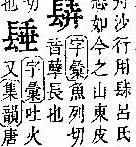 沙行用肆呂氏
如今之山東皮
字彙魚列切
音孽長也
切
字彙吐火
也
又集韻唐